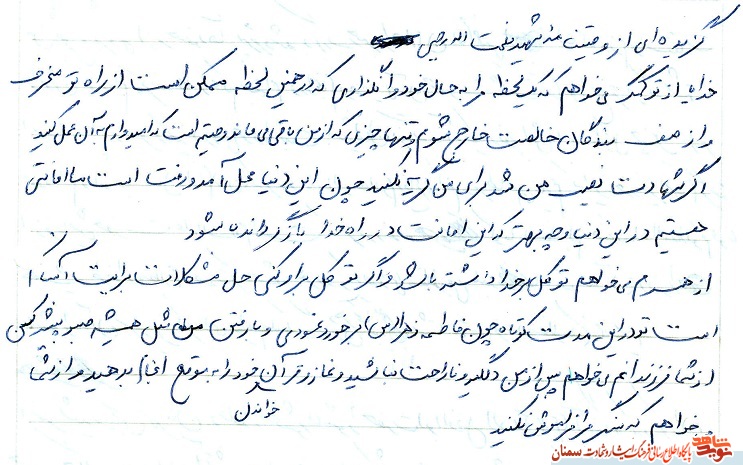 گزیده ای از وصیتنامه شهید نعمت اله رجبی
خدایا از تو کمک می خواهم که یک لحظه مرا به حال خود وا نگذاری که در همین لحظه ممکن است از راه تو منحرف
و از صف بندگان خالصت خارج شوم و تنها چیزی که از من باقی می ماند وصیتم است که امیدوارم به آن عمل کنید
اگر شهادت نصیب من شد برای من گریه نکنید چون این دنیا محل آمد و رفت است ما امانتی
هستیم در این دنیا و چه بهتر که این امانت در راه خدا بازگردانده شود
از همسرم می خواهم توکل بر خدا داشته باشد و اگر توکل بر او کنی حل مشکلات برایت آسان
است تو در این مدت کوتاه چون فاطمه زهرا (س) برخورد نمودی و با رفتن من هم مثل همیشه صبر پیشه کن
از شما فرزندانم می خواهم پس از من دلگیر و ناراحت نباشید و نماز و قرآن خود را به موقع انجام بدهید و از شما
خواندن
می خواهم که سنگر مرا فراموش نکنید
نوید شاهد
پایگاه اطلاع رسانی فرهنگ ایثار و شهادت سمنان